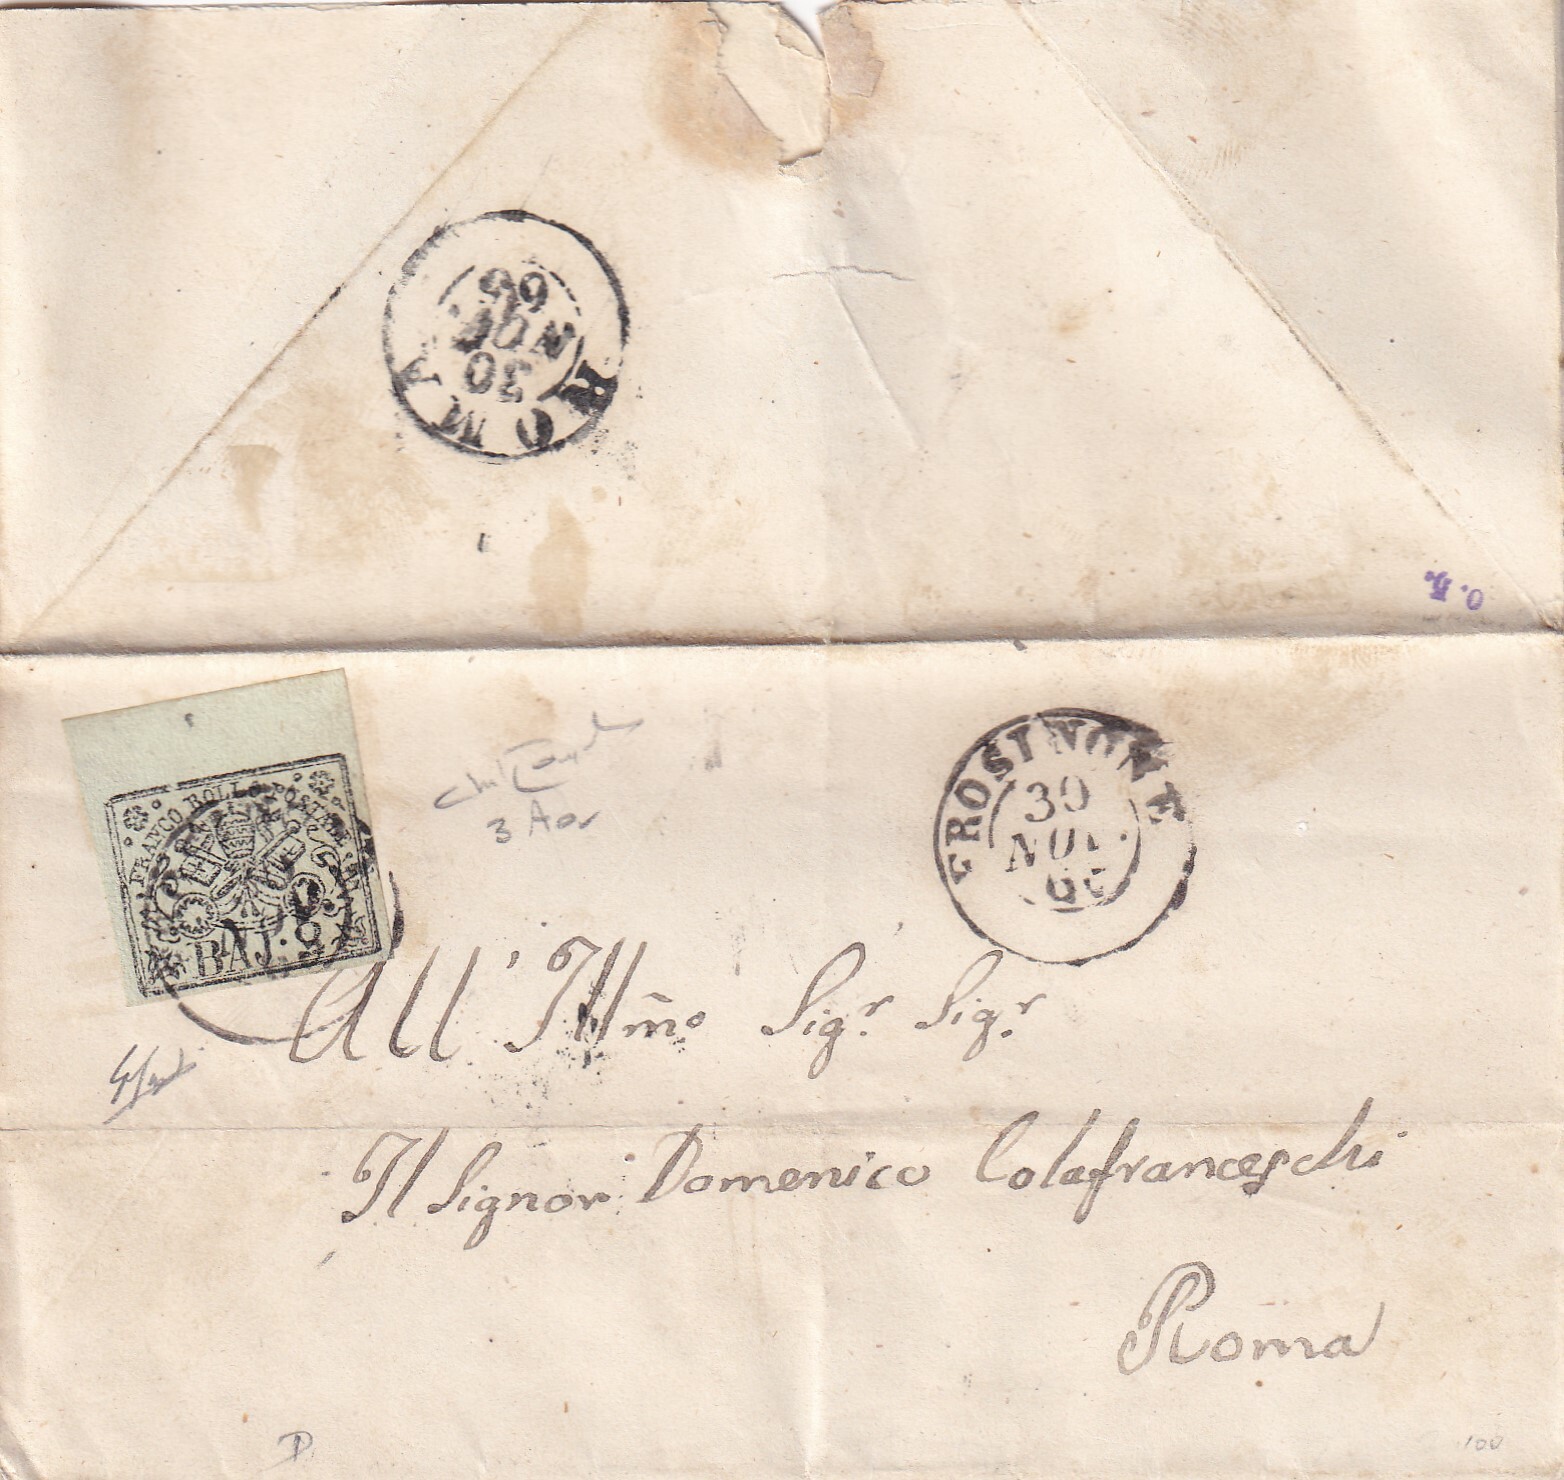 ROMA
30
NOV.
65
O.D.
FRANCO BOLLO POSTALE
BAJ. 2
3 Aor
FROSINONE
30
NOV.
65
All' Illm̃o Sigr. Sigr.
Il Signor Domenico Colafranceschi
Roma
D
100